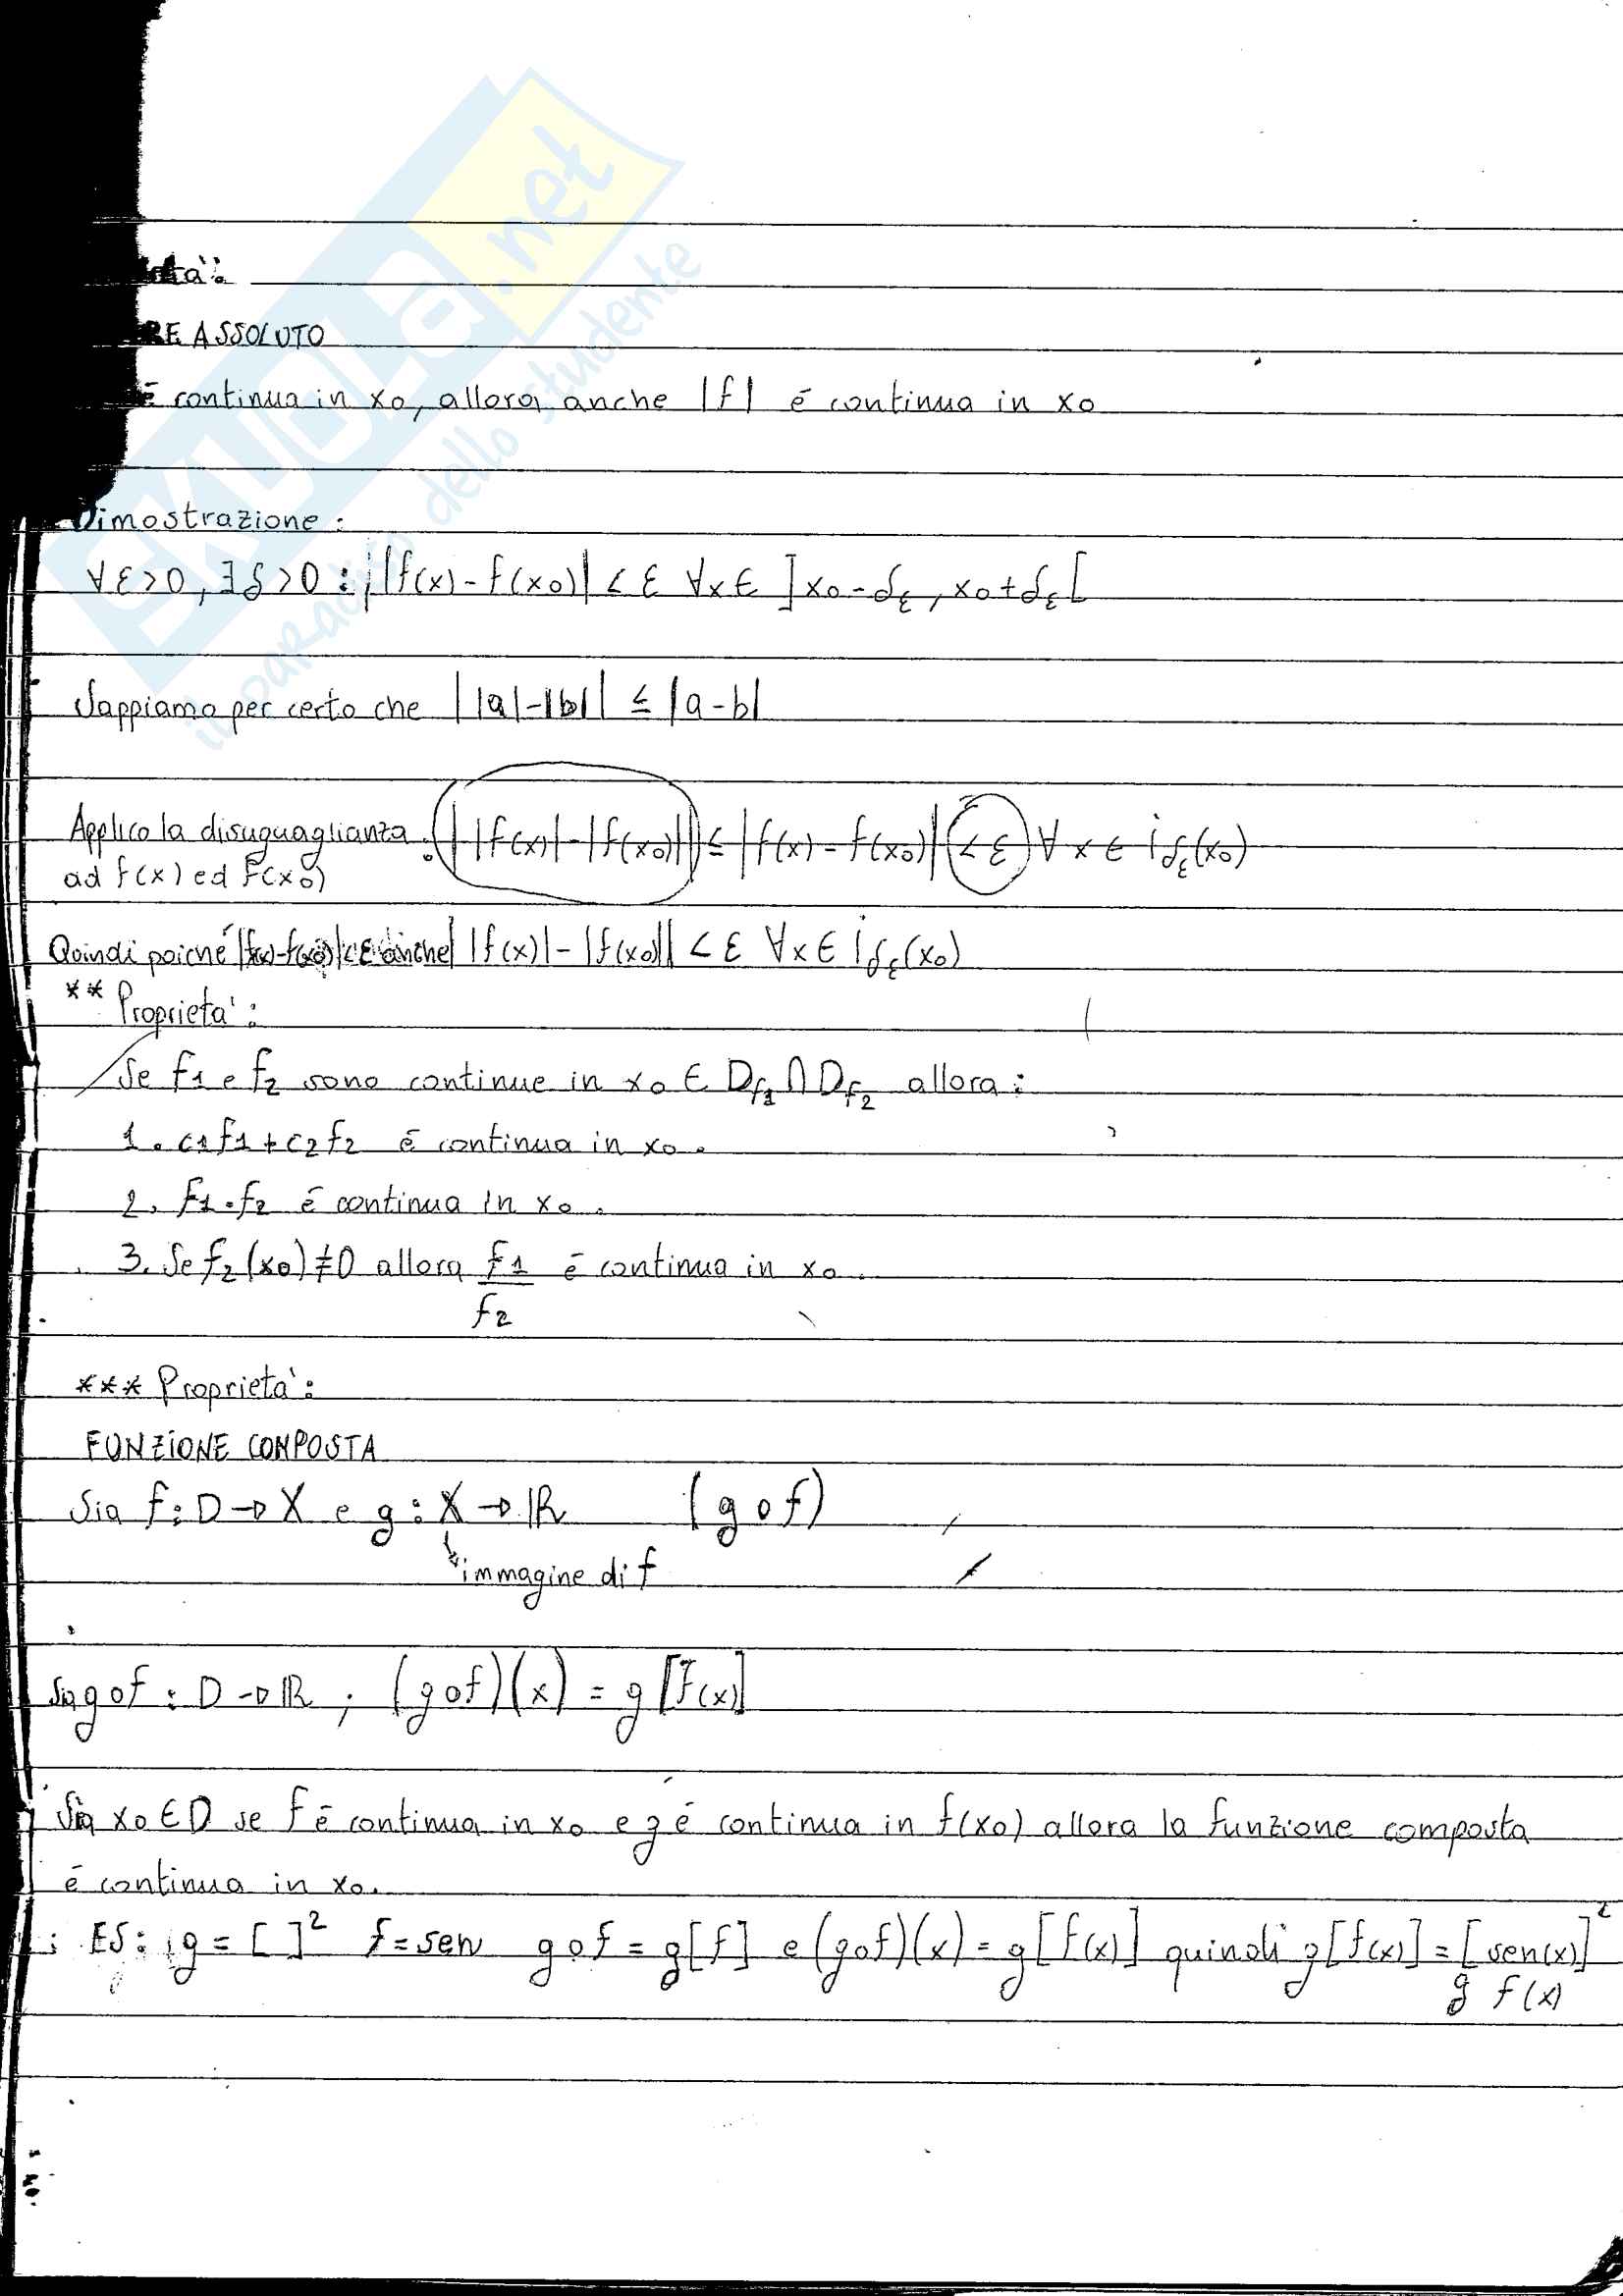 SKUOLA.net
il paradiso dello studente
ASSOLUTO
é continua in x0, allora anche |f| é continua in x0
Dimostrazione:
∀ε>0, ∃δ>0 : |f(x)-f(x0)|<ε ∀x∈ ]x0-δε, x0+δε[
Sappiamo per certo che ||a|-|b|| ≤ |a-b|
Applico la disuguaglianza : ||f(x)|-|f(x0)|| ≤ |f(x)-f(x0)| <ε ∀x∈ Iδε(x0)
ad f(x) ed f(x0)
Quindi poiché |f(x)-f(x0)|<ε anche ||f(x)|-|f(x0)|| <ε ∀x∈ Iδε(x0)
** Proprieta':
Se f1 e f2 sono continue in x0 ∈ Df1∩Df2 allora:
1. c1f1+c2f2 é continua in x0.
2. f1·f2 é continua in x0.
3. Se f2(x0)≠0 allora f1/f2 é continua in x0.
*** Proprieta':
FUNZIONE COMPOSTA
Sia f:D→X e g:X→ℝ (gof)
immagine di f
Sia gof : D→ℝ ; (gof)(x) = g[f(x)]
Sia x0∈D se f é continua in x0 e g é continua in f(x0) allora la funzione composta
é continua in x0.
ES: g=[ ]² f=sen gof=g[f] e (gof)(x)=g[f(x)] quindi g[f(x)]=[sen(x)]²
g f(x)